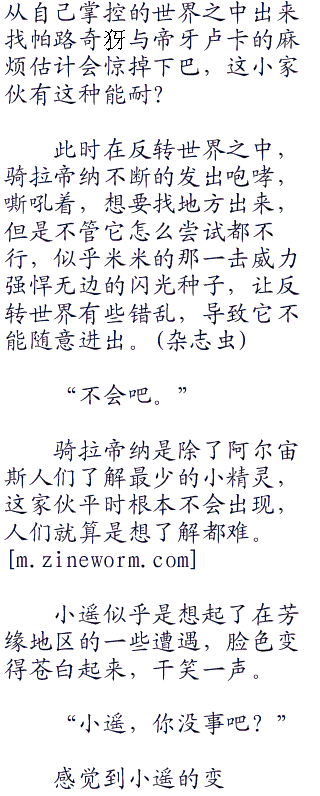 从自己掌控的世界之中出来
找帕路奇犽与帝牙卢卡的麻
烦估计会惊掉下巴，这小家
伙有这种能耐？
此时在反转世界之中，
骑拉帝纳不断的发出咆哮，
嘶吼着，想要找地方出来，
但是不管它怎么尝试都不
行，似乎米米的那一击威力
强悍无边的闪光种子，让反
转世界有些错乱，导致它不
能随意进出。(杂志虫)
“不会吧。”
骑拉帝纳是除了阿尔宙
斯人们了解最少的小精灵，
这家伙平时根本不会出现，
人们就算是想了解都难。
[m.zineworm.com]
小遥似乎是想起了在芳
缘地区的一些遭遇，脸色变
得苍白起来，干笑一声。
“小遥，你没事吧？”
感觉到小遥的变